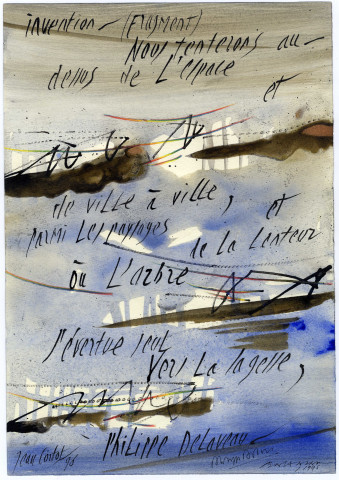 invention — (Fragment)
Nous tenterons au-
dessus de L'espace
et
de ville à ville, et
parmi Les paysages
de la Lenteur
où L'arbre
s'évertue seul
Vers La sagesse,
à Philippe Delaveau
Jean Cortot 98